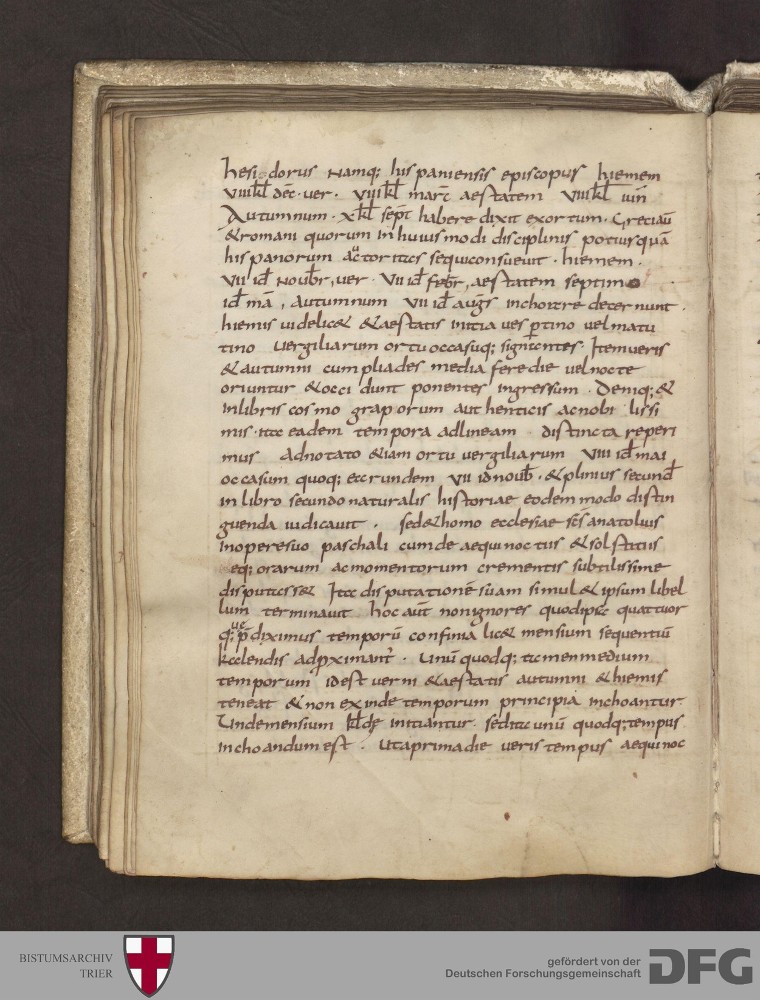 hesidorus namq; hispaniensis episcopus hiemem
VIIII kl dec̄ · ver · VIII kl marc̄ aestatem VIIII kl iun̄
Autumnum · X kl sept̄ habere dixit exortum · Greciau
& romani quorum in huiusmodi disciplinis potius quā
hispanorum auctoritas sequi consueuit · hiemem ·
VII id Noub̄r, ver · VII id feb̄r, aestatem septimo
id mā, Autumnum VII id augs inchoare decernunt ·
hiemis uidelic& & aestatis initia vespertino uel matu
tino vergiliarum ortu occasuq; signantes · Item veris
& autumni cum pliades media fere die uel nocte
oriuntur & occidunt ponentes ingressum · Deniq; &
in libris cosmographorum authenticis ac nobilissi
mis · itae eadem tempora ad lineam distincta reperi
mus Adnotato &iam ortu vergiliarum VIII id mai
occasum quoq; earundem VII id noub̄ · & plinius secund
in libro secundo naturalis historiae eodem modo distin
guenda iudicauit · sed & homo ecclesiae sc̄s anatolius
in opere suo paschali cum de aequinoctiis & solstitiis
eq; orarum ac momentorum crementis subtilissime
disputass& Ita disputationē suam simul & ipsum libel
lum terminauit hoc aut̄ non ignores quod ipsa quattuor
q; ue p̄diximus temporū confinia lic& mensium sequentiū
kalendis adproximant̄ · Unū quodq; tamen medium
temporum id est verni & aestatis autumni & hiemis
teneat & non exinde temporum principia inchoantur
Unde mensium kl̄dę initiantur sed ita unū quodq; tempus
inchoandum est · Ut a prima die veris tempus aequinoc
BISTUMSARCHIV
TRIER
gefördert von der
Deutschen Forschungsgemeinschaft
DFG